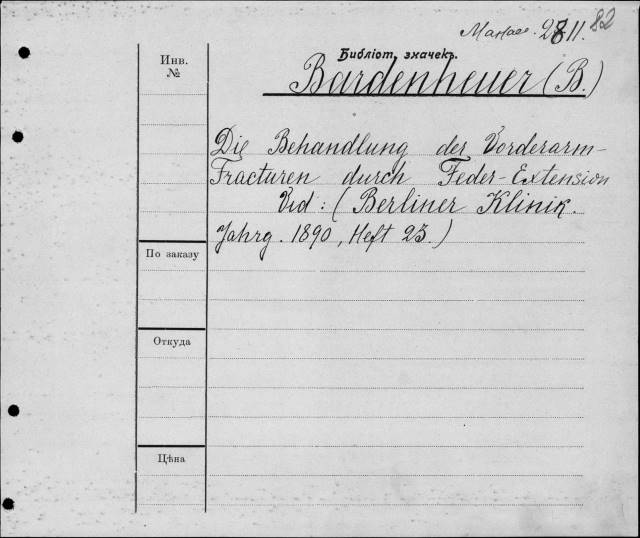 2811. 82
Инв.
№
Библіот. значекъ.
Bardenheuer (B.)
Die Behandlung der Vorderarm-
Fracturen durch Feder-Extension
Vid: (Berliner Klinik.
Jahrg. 1890, Heft 23.)
По заказу
Откуда
Цѣна